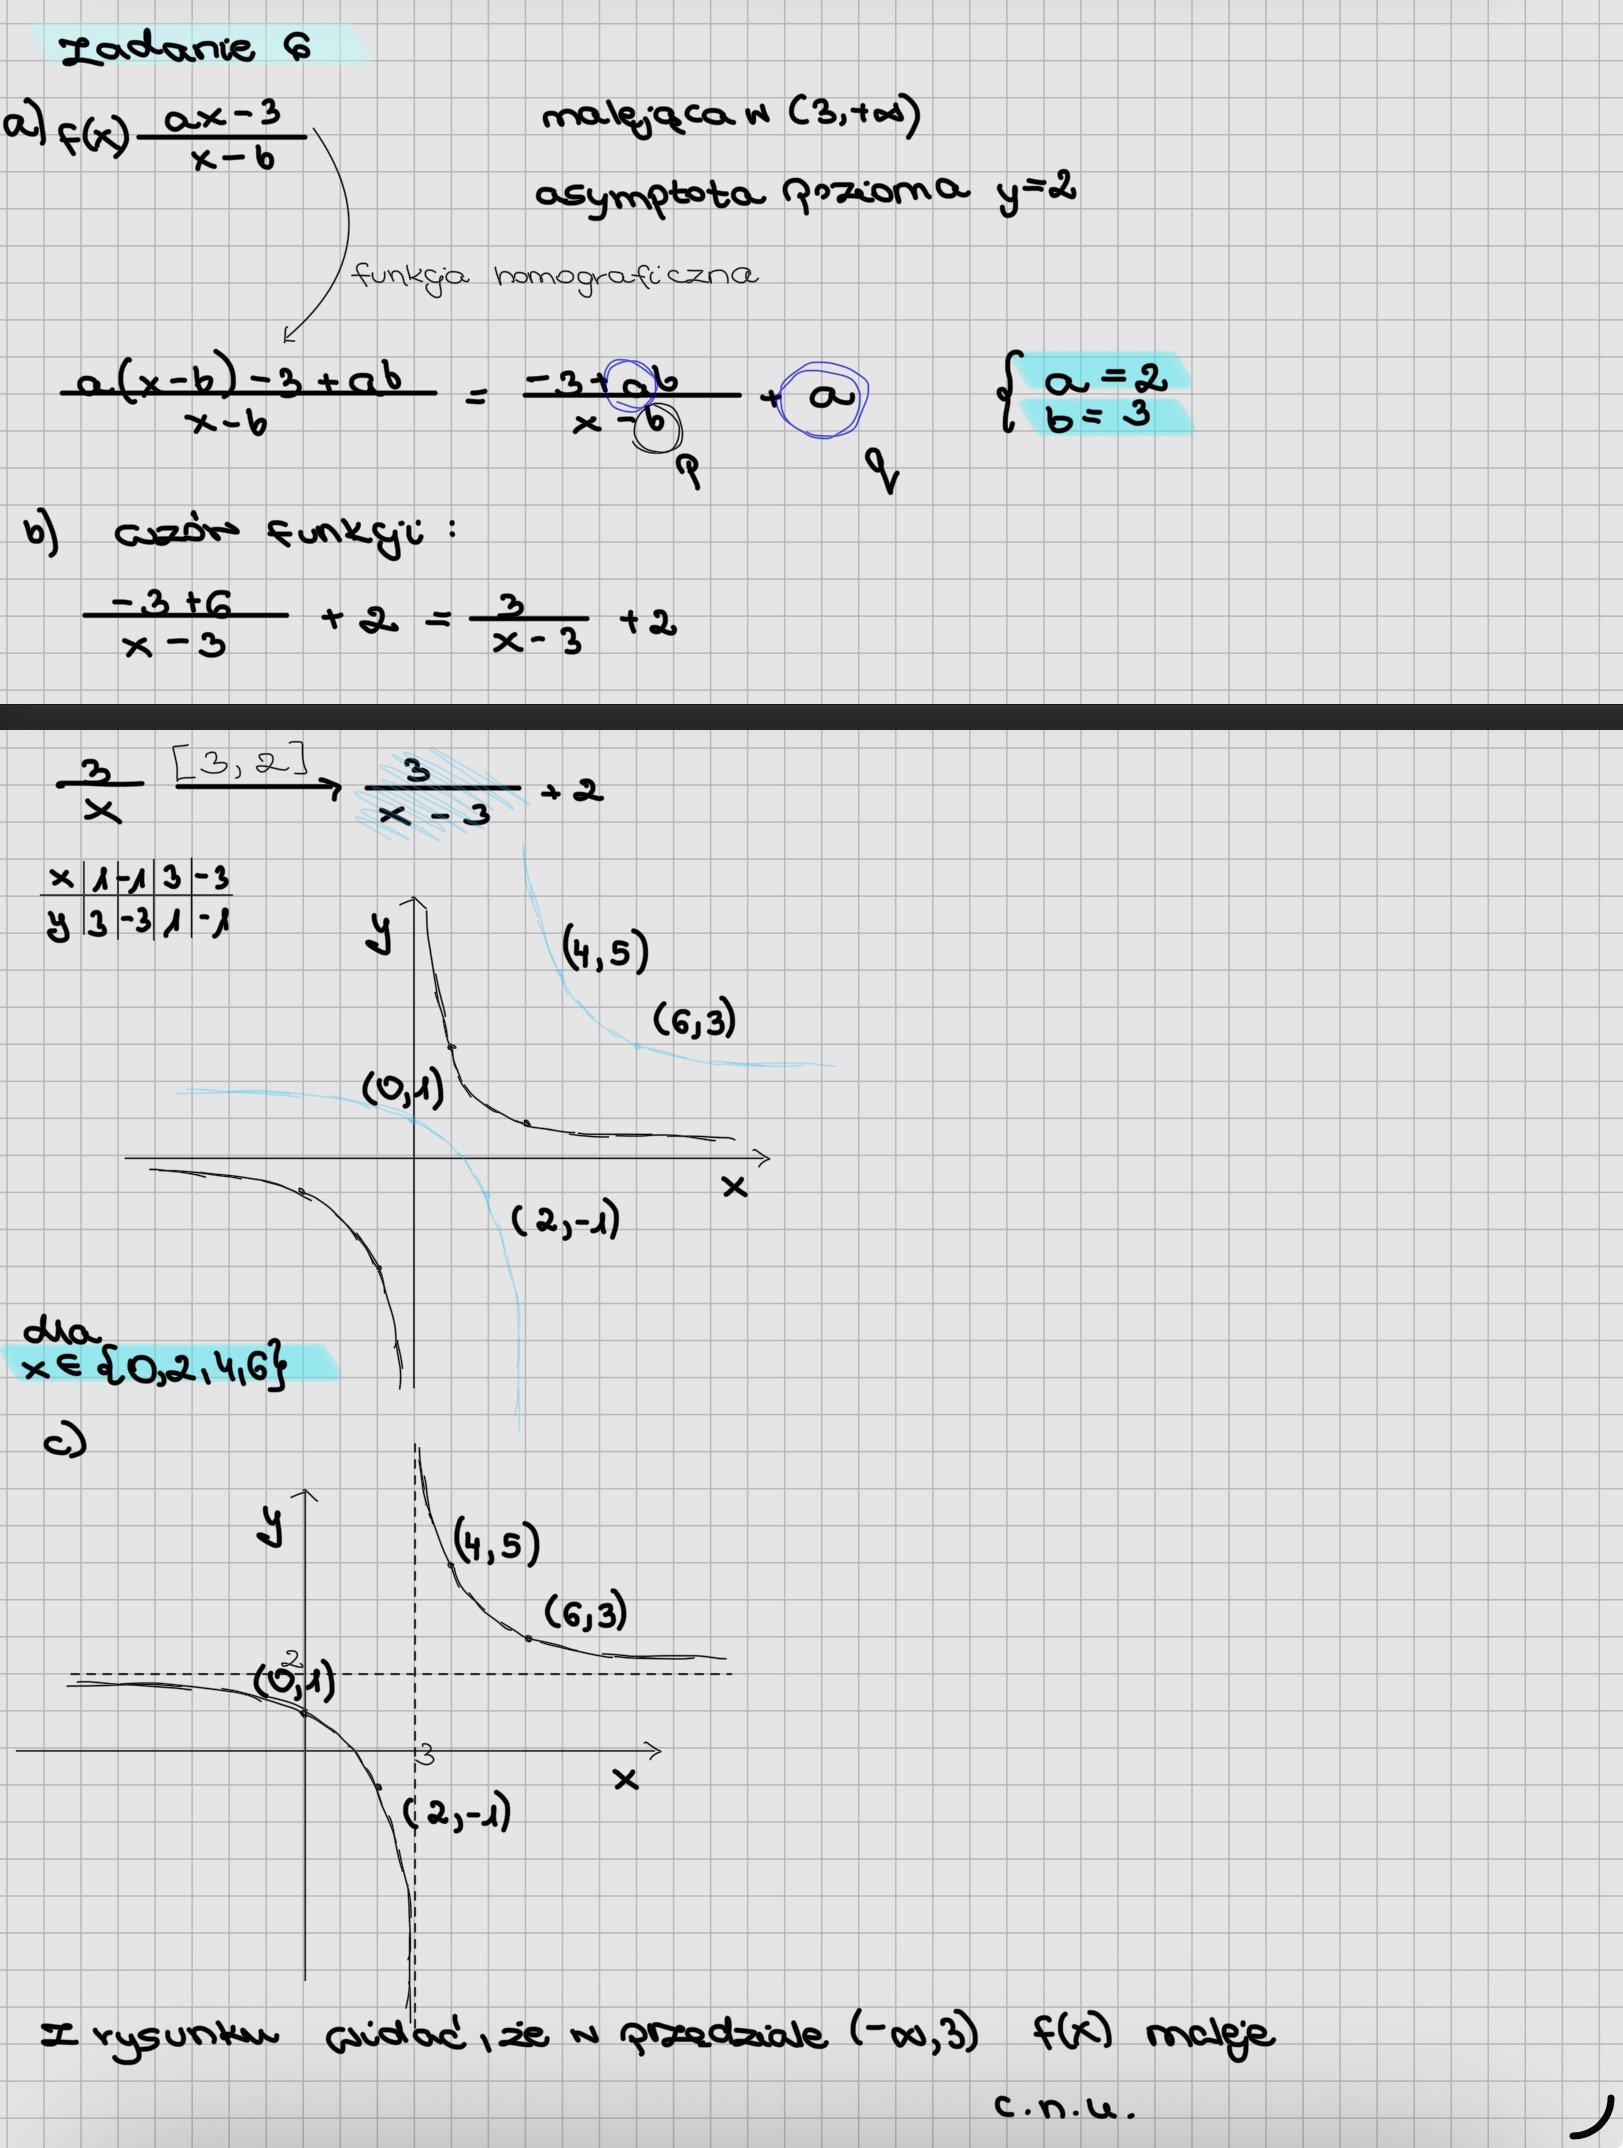 Zadanie 6
a) f(x) \frac{ax-3}{x-b}
malejąca w (3,+∞)
asymptota pozioma y=2
funkcja homograficzna
\frac{a(x-b)-3+ab}{x-b} = \frac{-3+ab}{x-b} + a
{ a = 2
b = 3
p q
b) wzór funkcji :
\frac{-3+6}{x-3} + 2 = \frac{3}{x-3} + 2
\frac{3}{x} [3,2] → \frac{3}{x-3} + 2
x | 1 | -1 | 3 | -3
y | 3 | -3 | 1 | -1
y
(4,5)
(6,3)
(0,1)
x
(2,-1)
dla
x ∈ {0,2,4,6}
c)
y
(4,5)
(6,3)
2
(0,1)
3
x
(2,-1)
Z rysunku widać, że w przedziale (-∞,3) f(x) maleje
c.n.u.